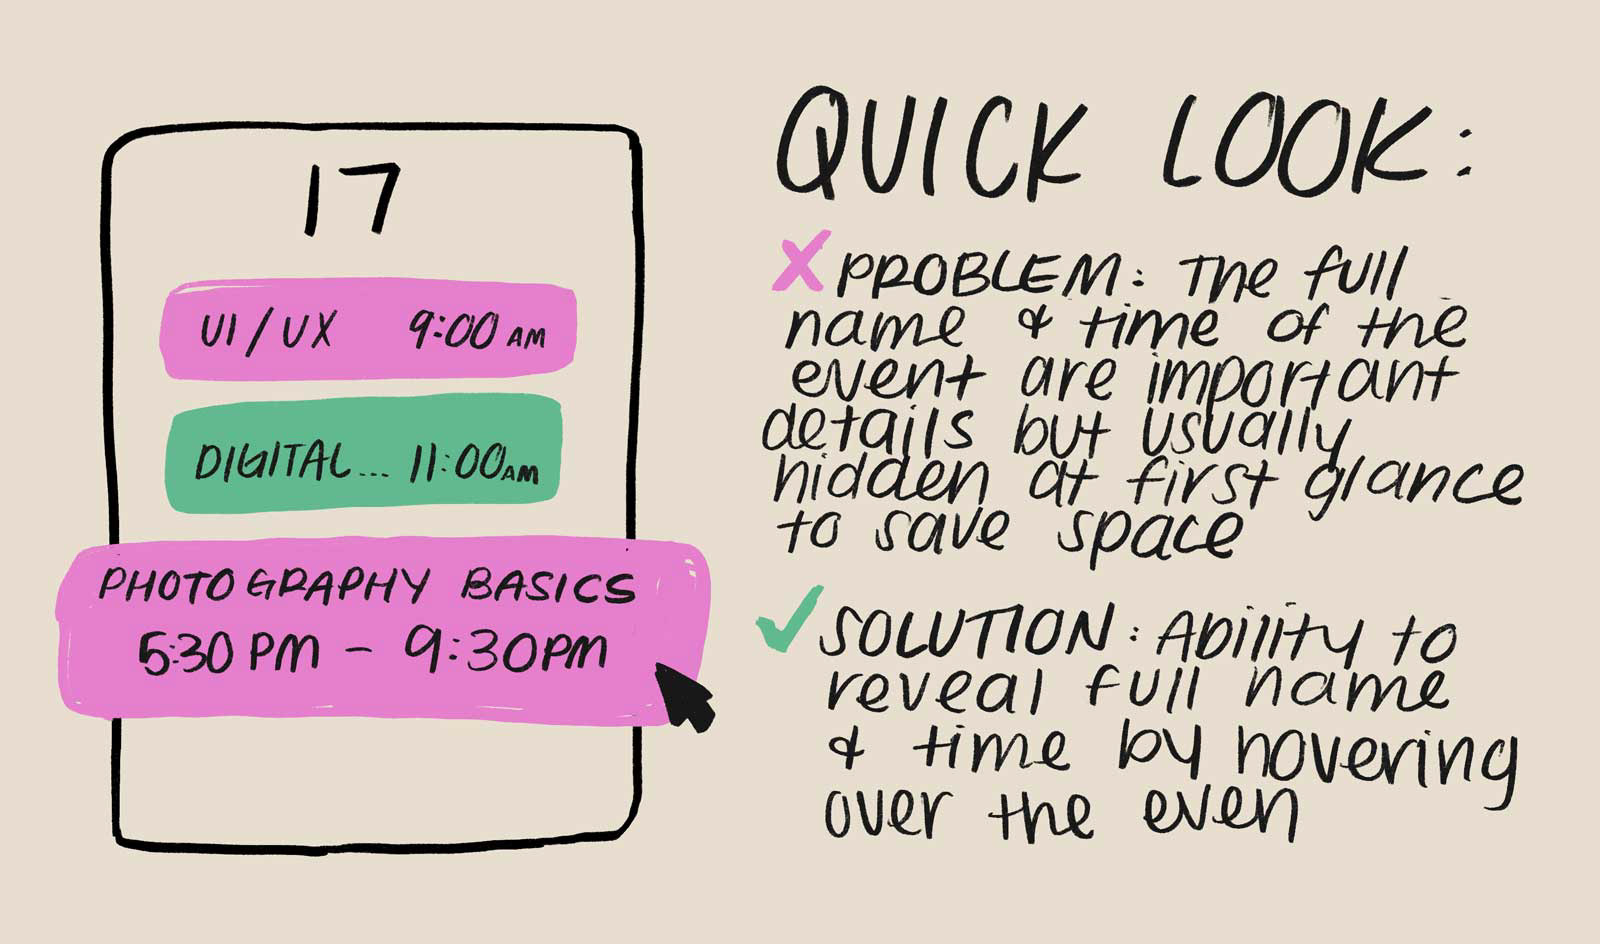 17
UI/UX 9:00 AM
DIGITAL... 11:00 AM
PHOTOGRAPHY BASICS
5:30 PM - 9:30PM
QUICK LOOK:
X PROBLEM: The full
name & time of the
event are important
details but usually
hidden at first glance
to save space
✓ SOLUTION: Ability to
reveal full name
& time by hovering
over the even